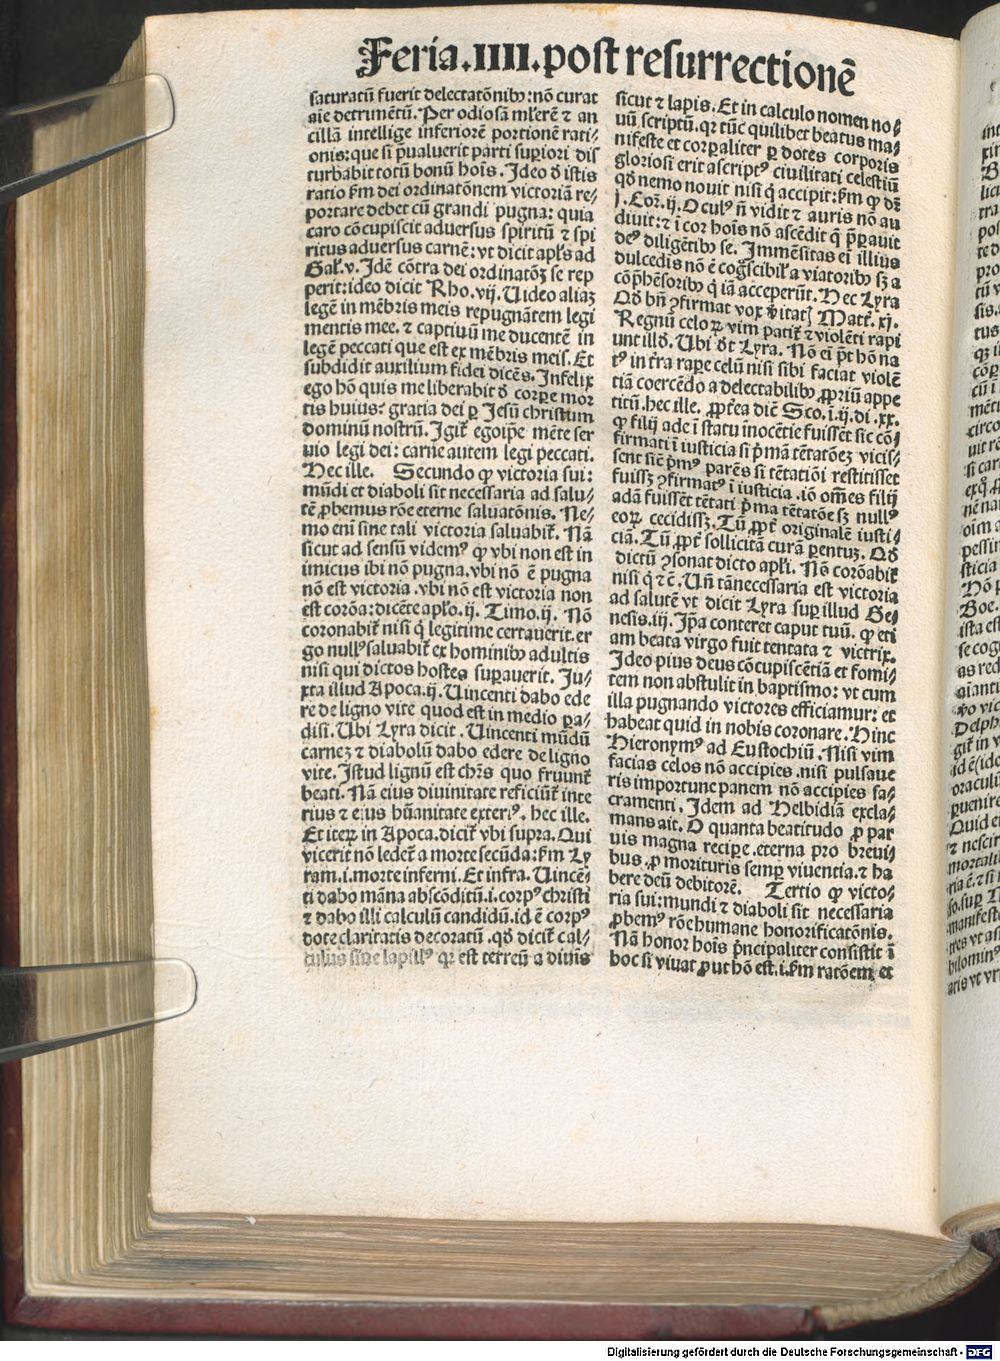 Feria.IIII.post resurrectionē
saturatū fuerit delectatōnibꝰ:nō curat
aīe detrimētū. Per odiosā mĺierē ⁊ an
cillā intellige inferiorē portionē rati⸗
onis:que si p̄ualuerit parti supiori dis
turbabit totū bonū hoīs. Ideo ď istis
ratio ẜm dei ordinatōnem victoriā re⸗
portare debet cū grandi pugna: quia
caro cōcupiscit aduersus spiritū ⁊ spi
ritus aduersus carnē: vt dicit apĺs ad
Gaĺ.v. Idē cōtra dei ordinatōꝫ se rep
perit:ideo dicit Rho.vij. Uideo aliaꝫ
legē in mēbris meis repugnātem legi
mentis mee. ⁊ captiuū me ducentē in
legē peccati que est ex mēbris meis. Et
subdidit auxilium fidei dicēs. Infelix
ego hō quis me liberabit ď corꝑe mor
tis huius? gratia dei ꝑ Jesū christum
dominū nostrū. Igit̄ egoip̄e mēte ser
uio legi dei: carne autem legi peccati.
Hec ille. Secundo ꝙ victoria sui:
mūdi et diaboli sit necessaria ad salu⸗
tē ꝓbemus rōe eterne saluatōnis. Ne⸗
mo enī sine tali victoria saluabit̄. Nā
sicut ad sensū videmꝰ ꝙ vbi non est in
imicus ibi nō pugna.vbi nō ē pugna
nō est victoria .vbi nō est victoria non
est corōa:dicēte apĺo.ij. Timo.ij. Nō
coronabit̄ nisi q̇ legitime certauerit.er
go nullꝰsaluabit̄ ex hominibꝰ adultis
nisi qui dictos hostes supauerit. Ju⸗
xta illud Apoca.ij. Uincenti dabo ede
re de ligno vite quod est in medio ꝑa⸗
disi. Ubi Lyra dicit. Uincenti mūdū
carneꝫ ⁊ diabolū dabo edere de ligno
vite. Istud lignū est chr̄s quo fruunt̄
beati. Nā eius diuinitate reficiūt̄ inte
rius ⁊ eius hūanitate exteriꝰ. hec ille.
Et iteꝝ in Apoca.dicit̄ vbi supra. Qui
vicerit nō ledet̄ a morte secūda:ẜm Ly
ram.i.morte inferni. Et infra. Uincē⸗
ti dabo māna abscōditū.i.corpꝰ christi
⁊ dabo illi calculū candidū.id ē corpꝰ
dote claritatis decoratū .qď dicit̄ cal⸗
culus siue lapillꝰ qꝛ est terreū a diuīs
sicut ⁊ lapis. Et in calculo nomen no⸗
uū scriptū.qꝛ tūc quilibet beatus ma⸗
nifeste et corꝑaliter ꝑ dotes corporis
gloriosi erit ascriptꝰ ciuilitati celestiū
qď nemo nouit nisi q̇ accipit:ẜm ꝙ dr̄
j. Coꝝ.ij. Oculꝰ ñ vidit ⁊ auris nō au
diuit: ⁊ ī cor hoīs nō ascēdit q̄ p̄ꝑauit
deꝰ diligētibꝰ se. Immēsitas ei illius
dulcedis nō ē cogscibiĺ a viatoribꝰ sꝫ a
cōp̄hēsoribꝰ q̇ iā acceperūt. Hec Lyra
Qď bn̄ ꝯfirmat vox v̄itatꝭ Matt̄. xj.
Regnū celoꝝ vim patit̄ ⁊ violēti rapi
unt illď. Ubi dt̄ Lyra. Nō ei p̄t hō na
tꝰ in t̄ra raꝑe celū nisi sibi faciat violē
tiā coercēdo a delectabilibꝰ ꝓpriū appe
titū.hec ille. ꝓpt̄ea diē Sco.i.ij.di.xx.
ꝙ filij ade ī statu inocētie fuissēt sic cō⸗
firmati ī iusticia si p̄mā tētatōeꝫ vicis⸗
sent siē p̄mꝰ parēs si tētatiōi restitisset
fuissꝫ ꝯfirmatꝰ ī iusticia .iō om̄es filij
adā fuissēt tētati p̄ma tētatōe sꝫ nullꝰ
eoꝝ cecidissꝫ. Tū ꝓpt̄ originalē iusti⸗
ciā. Tū ꝓpt̄ sollicitā curā parentuꝫ. Qď
dictū ꝯsonat dicto apĺi. Nō corōabit̄
nisi q̇ ⁊c̄. Un̄ tānecessaria est victoria
ad salutē vt dicit Lyra suꝑ illud Ge⸗
nesis.iij. Ip̄a conteret caput tuū. ꝙ eti
am beata virgo fuit tentata ⁊ victrix.
Ideo pius deus cōcupiscētiā et fomi⸗
tem non abstulit in baptismo: vt cum
illa pugnando victores efficiamur: et
habeat quid in nobis coronare. Hinc
Hieronymꝰ ad Eustochiū. Nisi vim
facias celos nō accipies .nisi pulsaue
ris importune panem nō accipies sa⸗
cramenti. Idem ad Helbidiā excla⸗
mans ait. O quanta beatitudo ꝓ par
uis magna recipe.eterna pro breui⸗
bus.ꝓ morituris semꝑ viuentia.⁊ ha
bere deū debitorē. Tertio ꝙ victo⸗
ria sui:mundi ⁊ diaboli sit necessaria
ꝓbemꝰ rōe humane honorificatōnis.
Nā honor hoīs p̄ncipaliter consistit ī
hoc si viuat ꝓut hō est.i.ẜm ratōem et
Digitalisierung gefördert durch die Deutsche Forschungsgemeinschaft - DFG